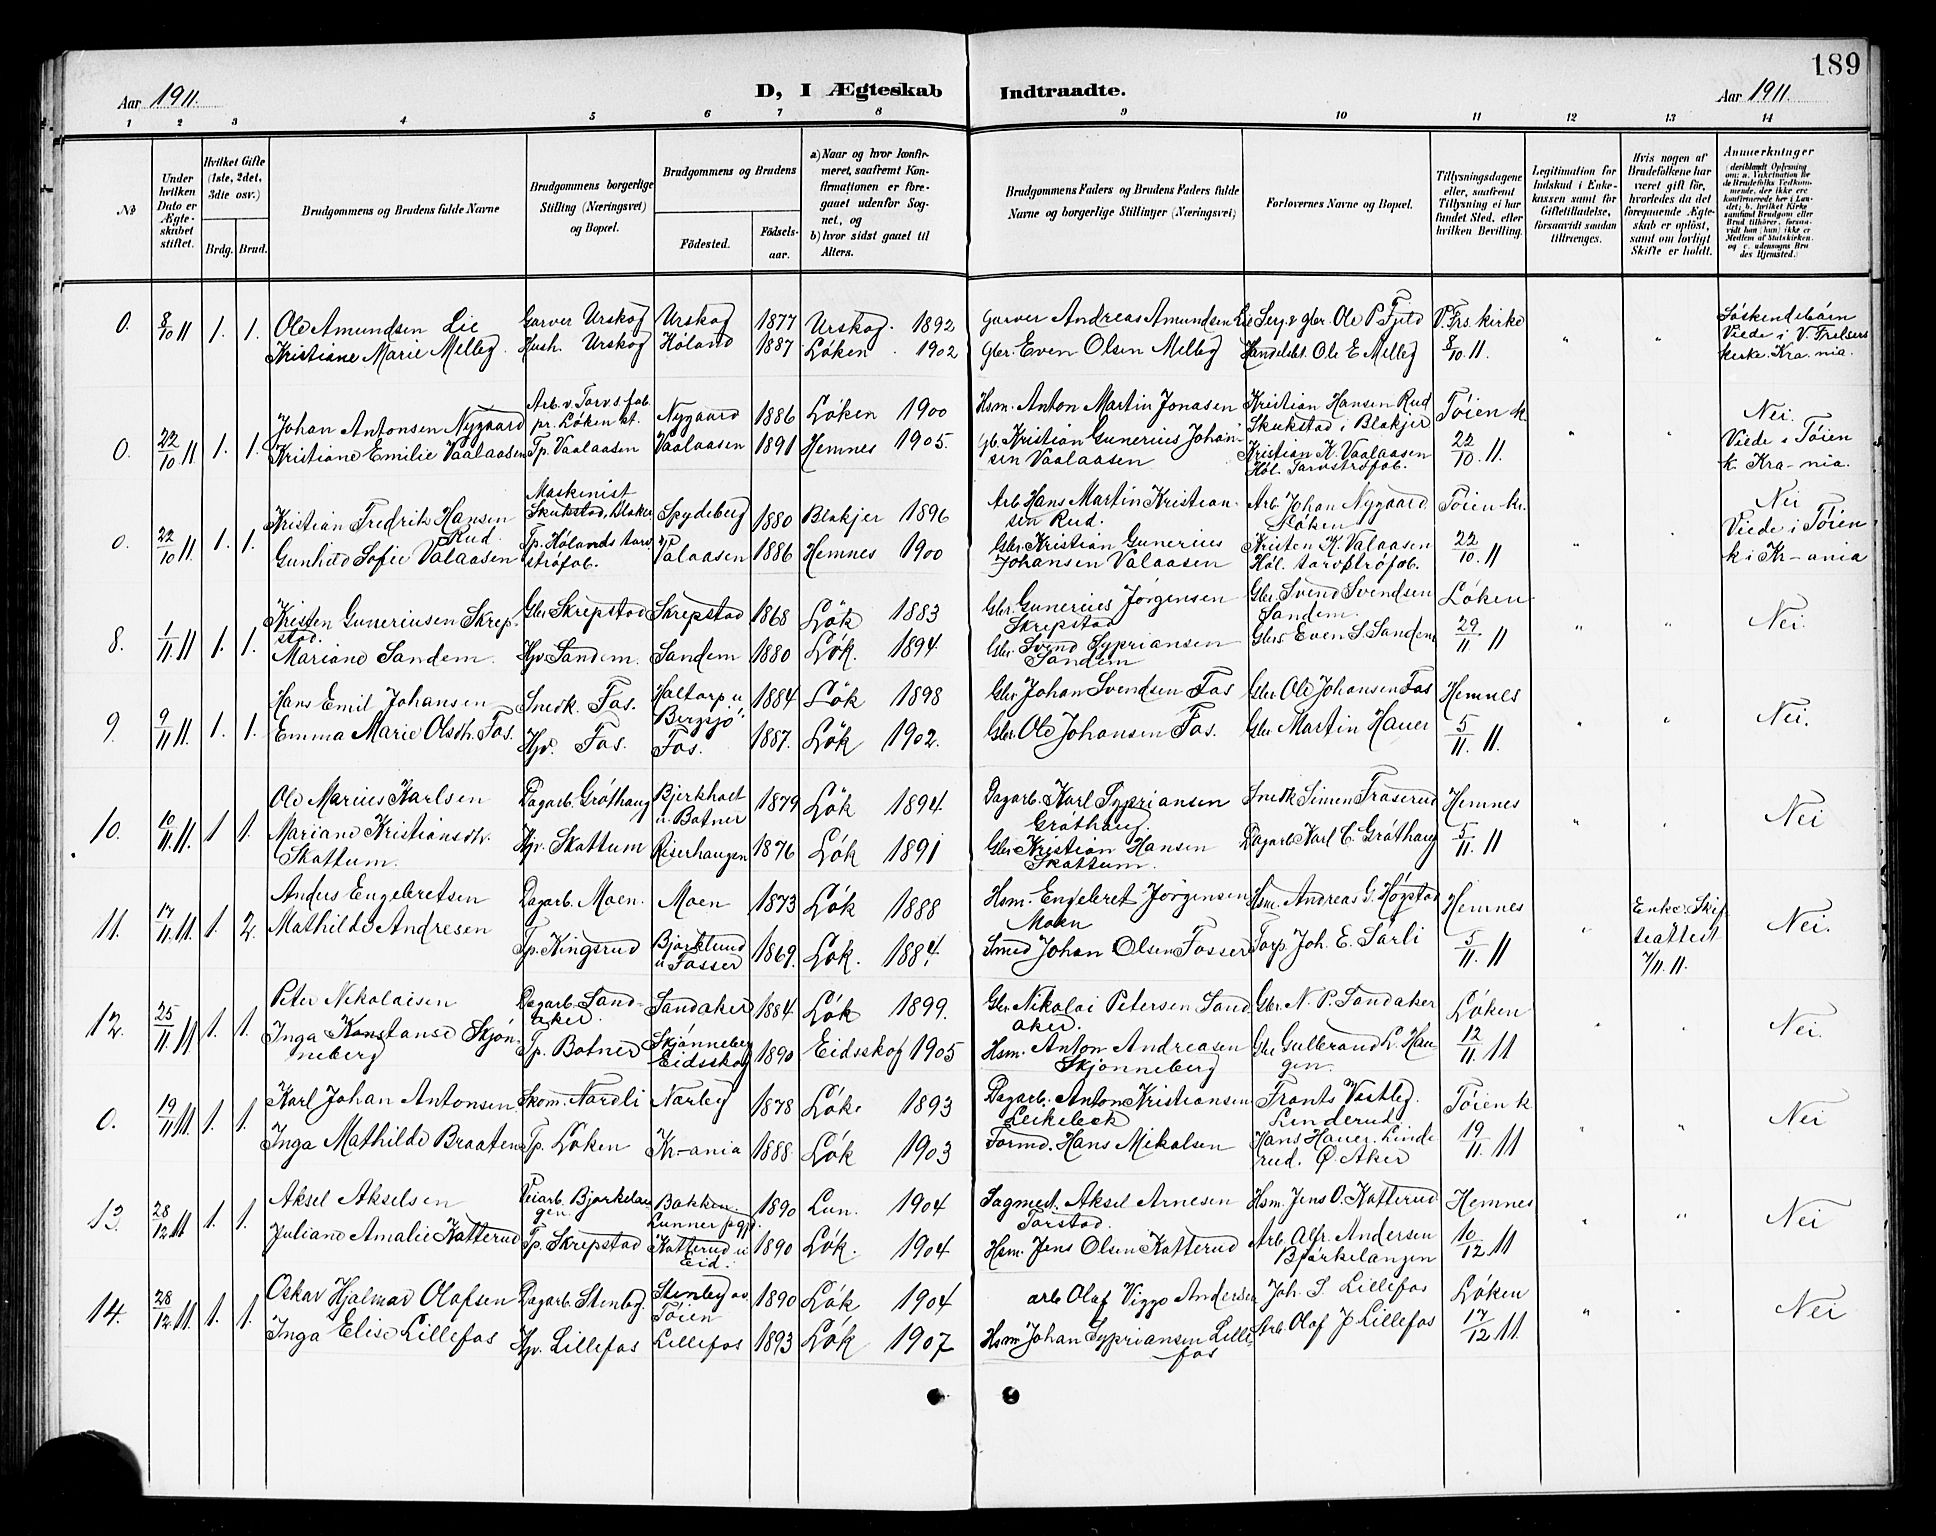 189
Aar 1911.
D, I Ægteskab
Indtraadte.
Aar 1911.
1 2 3 4 5 6 7 8 9 10 11 12 13 14
№
Under hvilken Dato er Ægteskabet stiftet.
Hvilket Gifte (1ste, 2det, 3die osv.)
Brdg. Brud.
Brudgommens og Brudens fulde Navne
Brudgommens borgerlige Stilling (Næringsvei) og Bopæl.
Brudgommens og Brudens
Fødested.
Fødselsaar.
a) Naar og hvor konfirmeret, saafremt Konfirmationen er foregaaet udenfor Sognet, og
b) hvor sidst gaaet til Alters.
Brudgommens Faders og Brudens Faders fulde Navne og borgerlige Stillinger (Næringsvei)
Forlovernes Navne og Bopæl.
Tillysningsdagene eller, saafremt Tillysning ei har fundet Sted, efter hvilken Bevilling.
Legitimation for Indskud i Enkekassen samt for Giftetilladelse, forsaavidt saadan tiltrænges.
Hvis nogen af Brudefolkene har været gift før, hvorledes da det foregaaende Ægteskab er opløst, samt om lovligt Skifte er holdt.
Anmerkninger
(deriblandt Oplysning om: a. Vakcination for de Brudefolks Vedkommende, der ikke ere konfirmerede her i Landet; b. hvilket Kirkesamfund Brudgom eller Brud tilhører, forsaavidt han (hun) ikke er Medlem af Statskirken, og c. udensogns Brudes Hjemsted.)
0. 8/10 11 1. 1. Ole Amundsen Lie Garver Urskog Urskog 1877 Urskog. 1892 Garver Andreas Amundsen Lie Serg. & gbr. Ole P. Fjeld V. Frs. kirke " " Søskendebørn
Kristiane Marie Melleg. Hush. Urskog Høland 1887 Løken. 1902 Gbr. Even Olsen Melleg Handelsb. Ole E Melleg 8/10 11. Viede i V. Frelsers kirke. Kra-nia.
0. 22/10 11 1. 1. Johan Antonsen Nygaard Arb. v. Torvs.fab. pr. Løken st. Nygaard 1886 Løken 1900 Hsm. Anton Martin Jonasen Kristian Hansen Rud Skukstad i Blakjer Tøien k " " Nei.
Kristiane Emilie Vaalaasen Tp. Vaalaasen Vaalaasen 1891 Hemnes 1905. Gb. Kristian Gunerius Johansen Vaalaasen Kristian K. Vaalaasen Høl. Torvstrøfab. 22/10. 11. Viede i Tøien k. Kra-nia.
0. 22/10 11 1. 1. Kristian Fredrik Hansen Rud Maskenist Skukstad, Blaker Spydeberg 1880 Blakjer 1896 Arb Hans Martin Kristiansen Rud. Arb. Johan Nygaard Løken Tøien kr. " " Nei
Gunhild Sofie Valaasen Tp. Hølands torvstrøfab. Valaasen 1886 Hemnes 1900 Gbr. Kristian Gunerius Johansen Valaasen Kristen K. Valaasen Høl. torvstrøfab. 22/10 11 Viede i Tøien k i Kr-ania
8. 1/11 11 1. 1. Kristen Guneriusen Skrepstad. Gbr Skrepstad Skrepstad 1868 Løk 1883 Gbr. Gunerius Jørgensen Skrepstad Gbr. Svend Svendsen Sandem. Løken " " Nei.
Mariane Sandem. Hjv. Sandem. Sandem 1880 Løk. 1894 Gbr. Svend Sypriansen Sandem Gbr. Even S. Sandem 29/11 11
9. 9/11 11 1. 1. Hans Emil Johansen Snedk. Fos. Haltorp u. Bergsjø 1884 Løk 1898 Gbr Johan Svendsen Fos Gbr Ole Johansen Fos Hemnes " " Nei.
Emma Marie Olsdtr. Fos. Hjv. Fos. Fos. 1887. Løk 1902. Gbr. Ole Johansen Fos. Gbr Martin Hauer 5/11 11.
10. 10/11 11. 1 1. Ole Marius Karlsen Dagarb. Grøthaug Bjerkholt u. Botner 1879 Løk 1894. Dagarb. Karl Sypriansen Grøthaug Snedk Simen Fraserud Hemnes " " Nei
Mariane Kristiansdtr. Skattum. Hjv. Skattum Riserhaugen 1876 Løk 1891 Gbr Kristian Hansen Skattum. Dagarb Karl C. Grøthaug 5/11. 11
11. 17/11 11. 1. 2. Anders Engebretsen Dagarb. Moen. Moen 1873 Løk 1888 Hsm. Engebret Jørgensen Moen Hsm. Andreas G. Høgstad Hemnes " Enke. Skifteattest 7/11 11. Nei.
Mathilde Andresen Tp. Kingsrud Bjørklund u Fosser 1869. Løk. 1884. Smed Johan Olsen Fosser Torp. Joh. E. Sørli 5/11 11
12. 25/11 11 1. 1. Peter Nikolaisen Dagarb. Sandaker. Sandaker 1884. Løk 1899. Gbr. Nikolai Petersen Sandaker. Gbr. N. P. Sandaker Løken " " Nei.
Inga Konstanse Skjønneberg Tp. Botner Skjønneberg Eidsskog 1890 Eidsskog 1905 Hsm. Anton Andreasen Skjønneberg Gbr Gulbrand L. Haugen. 12/11. 11
0. 19/11 11 1. 1. Karl Johan Antonsen Skom. Nordli Nørby 1878 Løk. 1893 Dagarb. Anton Kristiansen Leikebek Frants Vestleg. Linderud Tøien k " " Nei
Inga Mathilde Braaten Tp. Løken Kr-ania 1888. Løk 1903 Formd. Hans Mikalsen Hans Hauer. Linderud. Ø. Aker 19/11. 11
13. 28/12 11 1. 1. Aksel Akselsen Veiarb. Bjørkelangen. Bakken. Lunner pgj. 1890 Lun. 1904 Sagmest. Aksel Arnesen Torstad. Hsm. Jens O. Katterud Hemnes " " Nei
Juliane Amalie Katterud Tp. Skrepstad Katterud u Eid. 1890 Løk. 1904. Hsm. Jens Olsen Katterud Arb. Alfr. Andersen Bjørkelangen 10/12 11
14. 28/12 11. 1. 1. Oskar Hjalmar Olafsen Dagarb. Stenbeg. Stenbeg av Tøien 1890 Løk 1904 arb Olaf Viggo Andersen Joh. S. Lillefos Løken " " Nei
Inga Elise Lillefos Hjv. Lillefos Lillefos 1893 Løk 1907 Hsm Johan Sypriansen Lillefos Arb. Olaf J Lillefos 17/12 11.